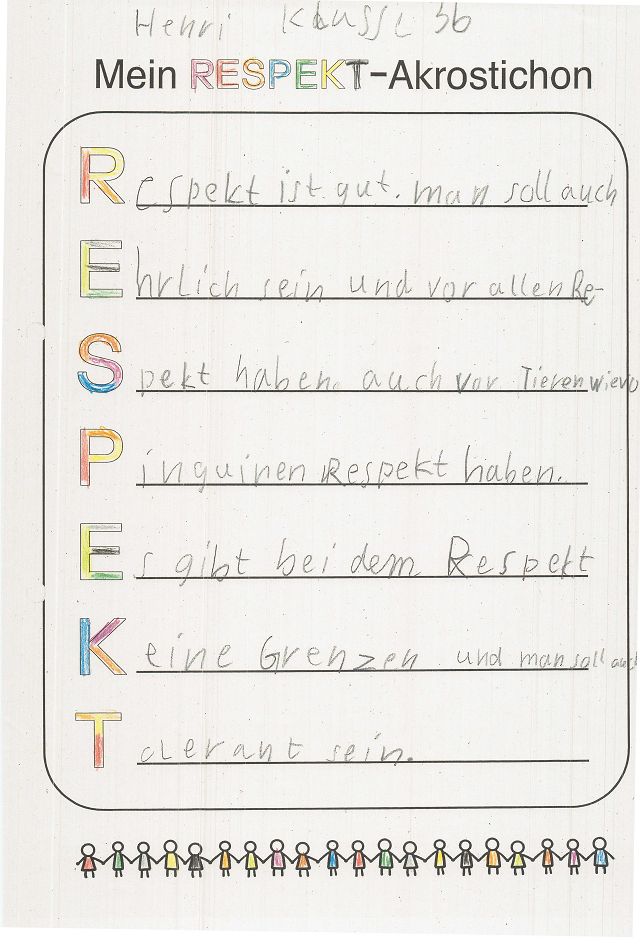 Henri Klasse 3b
Mein RESPEKT-Akrostichon
Respekt ist gut. man soll auch
Ehrlich sein und vor allen Re-
Spekt haben. auch vor Tieren wie vo
Pinguinen Respekt haben.
Es gibt bei dem Respekt
Keine Grenzen und man soll auch
Tolerant sein.